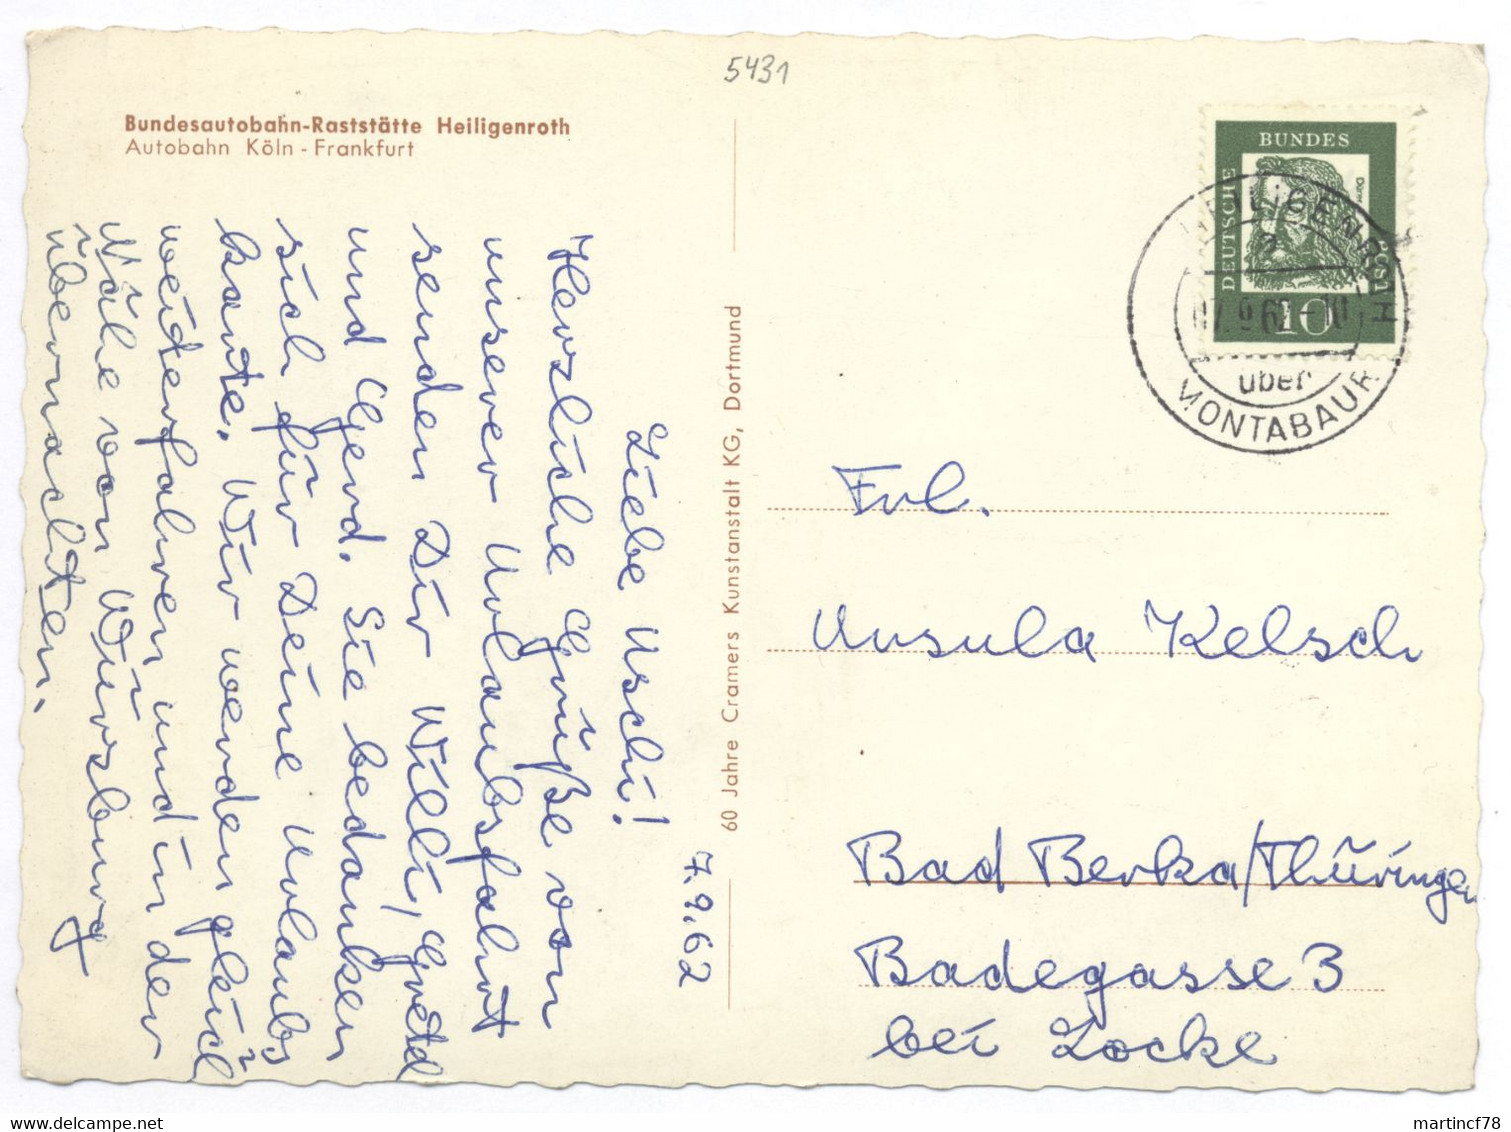 5431
Bundesautobahn-Raststätte Heiligenroth
Autobahn Köln - Frankfurt
7.9.62
Liebe Uschi!
Herzliche Grüße von
unserer Urlaubsfahrt
senden Dir Willi, Gretel
und Gerd. Sie bedanken
sich für Deine Urlaubs
karte. Wir werden gleich
weiterfahren und in der
Nähe von Würzburg
übernachten.
60 Jahre Cramers Kunstanstalt KG, Dortmund
DEUTSCHE
BUNDES
POST
Dürer
10
HEILIGENROTH
a
07.9.62-10
über
MONTABAUR
Frl.
Ursula Kelsch
Bad Berka/Thüringen
Badegasse 3
bei Locke
martincf78